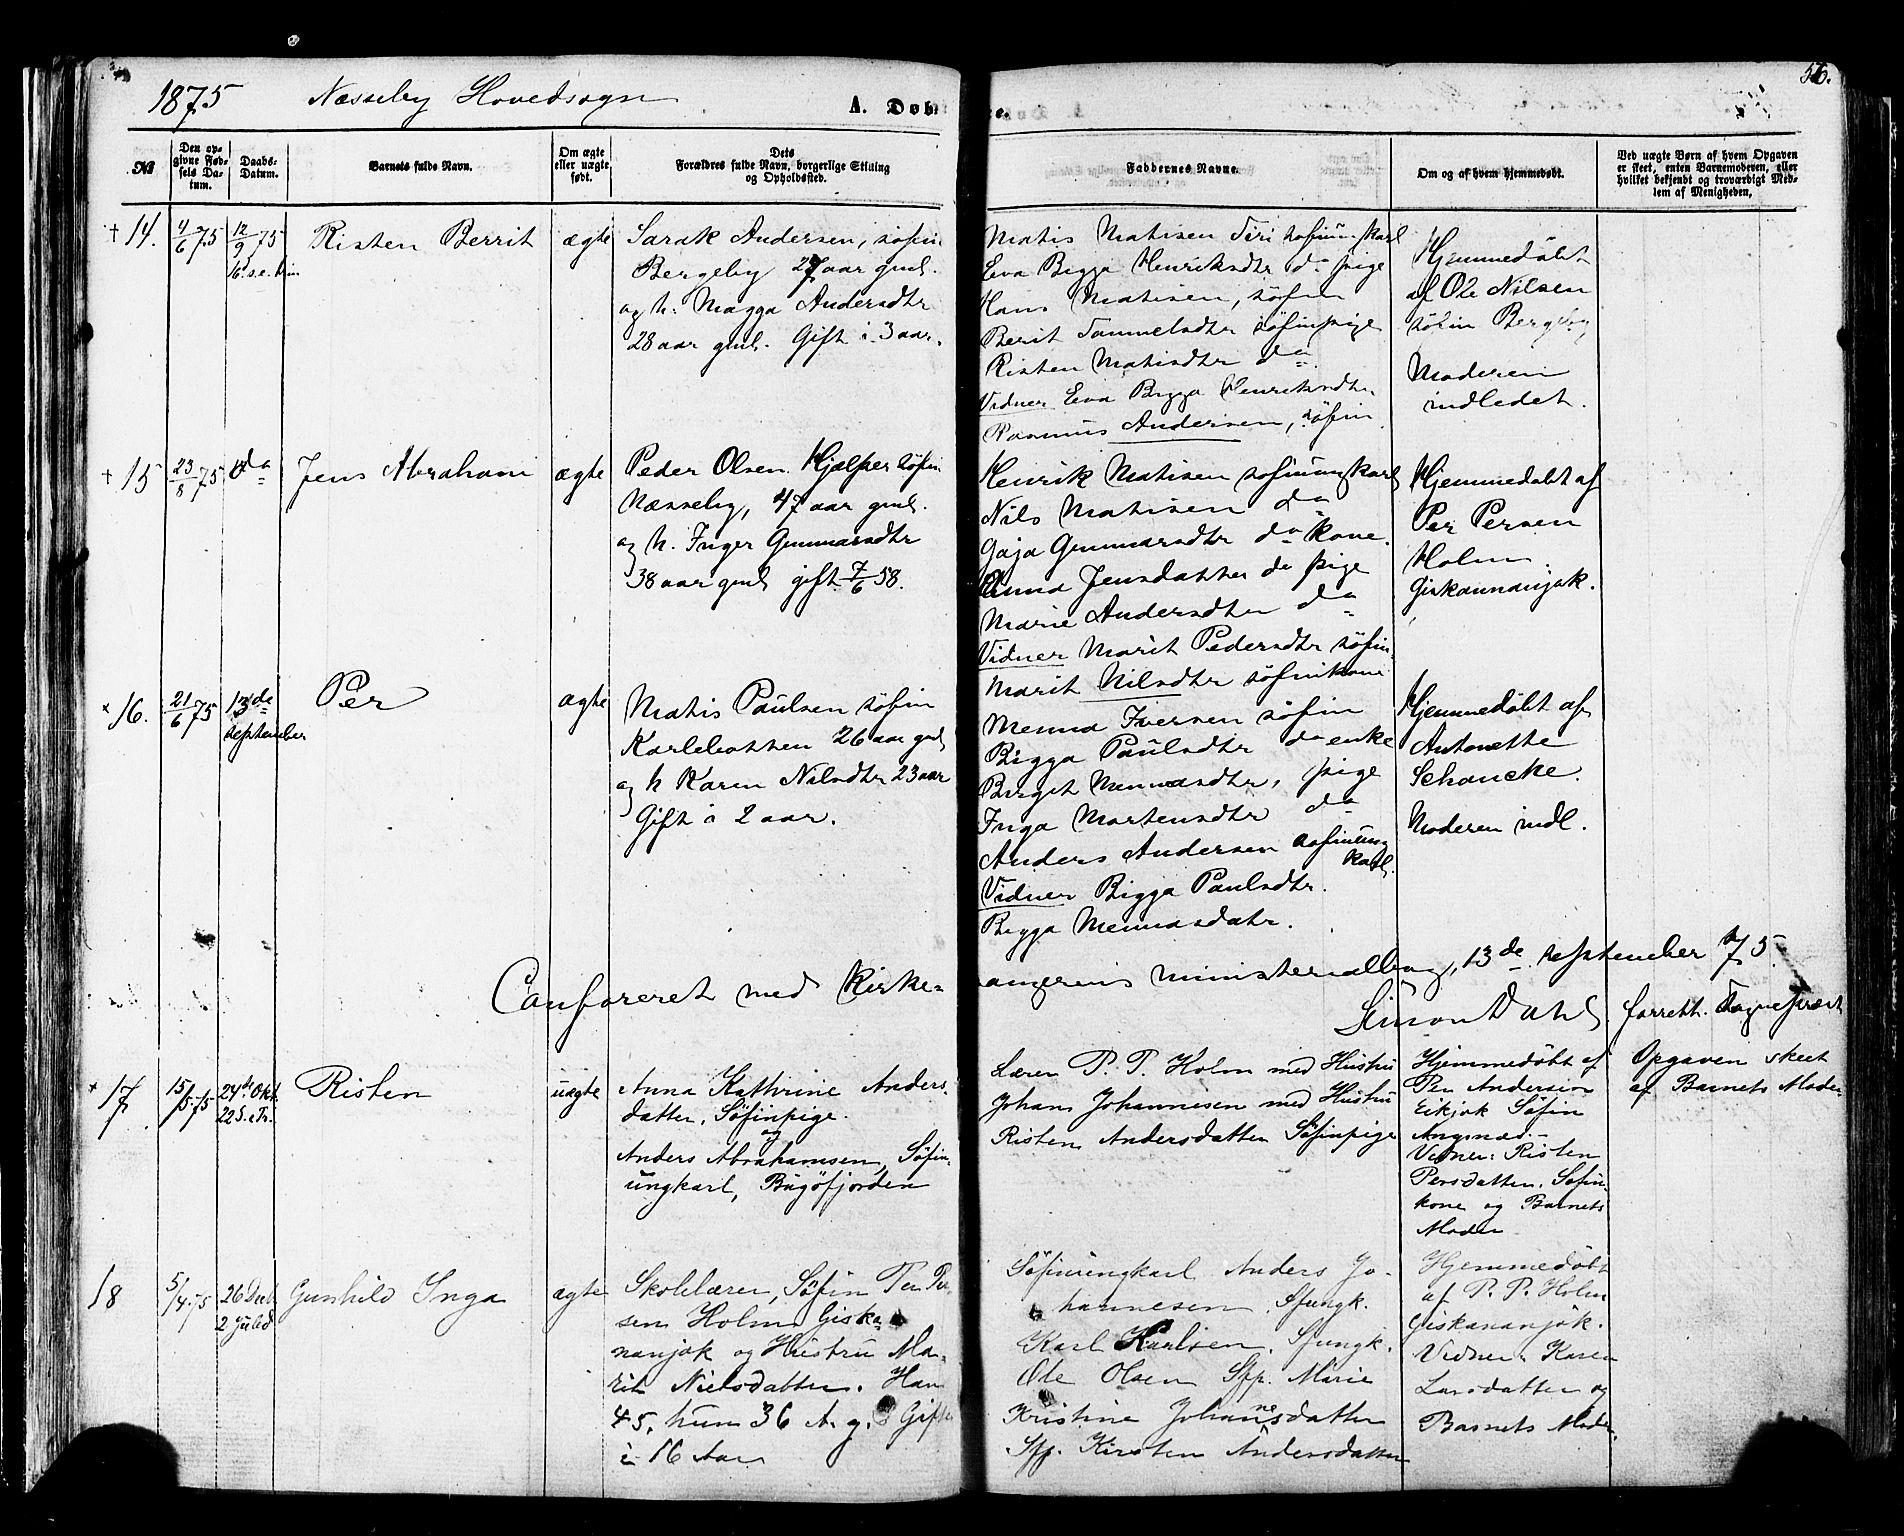 1875 Næsseby Hovedsogn A. Døb
56.
№
Den op-
givne Fød-
sels Da-
tum.
Daabs-
Datum.
Barnets fulde Navn.
Om ægte
eller uægte
født.
Dets
Forældres fulde Navn, borgerlige Stilling
og Opholdssted.
Faddernes Navne.
Om og af hvem hjemmedøbt.
Ved uægte Børn af hvem Opgaven
er skeet, enten Barnemoderen, eller
hvilket bekjendt og troværdigt Med-
lem af Menigheden.
+ 14. 4/6 75 12/9 75
16. s.e. Trin.
Risten Berrit
ægte
Sarak Andersen, søfin
Bergeby 27 aar gml.
og h. Magga Andersdtr
28 aar gml. Gift i 3 aar.
Matis Matisen Siri søfinungkarl
Eva Bigga Henriksdtr do pige
Hans Matisen, søfin
Berit Sammelsdtr søfinpige
Risten Matisdtr do
Vidner Eva Bigga Henriksdtr
Rasmus Andersen, søfin
Hjemmedøbt
af Ole Nilsen
søfin Bergeby
Moderen
indledet.
+ 15 23/8 75 do
Jens Abraham
ægte
Peder Olsen Hjælper søfin
Næsseby, 47 aar gml.
og h. Inger Gunnarsdtr
38 aar gml gift 7/6 58.
Henrik Matisen søfinungkarl
Nils Matisen do
Gaja Gunnarsdtr do kone.
Jensdatter do pige
Marie Andersdtr do
Vidner Marit Pedersdtr søfin
Marit Nilsdtr søfinkone
Hjemmedøbt af
Per Persen
Holm
Giskannanjok.
× 16. 21/6 75 13de
september
Per
ægte
Matis Paulsen søfin
Karlebotten 26 aar gml
og h Karen Nilsdtr 23 aar
Gift i 2 aar.
Menna Iversen søfin
Bigga Paulsdtr do enke
Birget Mennasdtr, pige
Inga Mortensdtr do
Anders Andersen søfinung
karl.
Vidner Bigga Paulsdtr.
Bigga Mennasdatr.
Hjemmedøbt af
Antonette
Schancke.
Moderen indl.
Confereret med Kirke-
sangerens ministerialbog, 13de september 75.
Simon Dahl
forrett. Sognepræst
× 17 15/5 75 24de Okt.
22 S. e Tr.
Risten
uægte
Anna Kathrine Anders-
datter, Søfinpige.
og
Anders Abrahamsen, Søfin-
ungkarl, Bugøfjorden
Lærer P. P. Holm med Hustru
Johans Johannesen med Hustru
Risten Andersdatter Søfinpige
Hjemmedøbt af
Per Andersen
Søfin
Angsnæs.
Vidner: Risten
Persdatter, Søfin-
kone og Barnets
Moder
Opgaven skeet
af Barnets Moder
18 5/4 75 26 Decb
2 Juled
Gunhild Inga
ægte
Skolelærer, Søfin Per Per-
sen Holm Giska-
nanjok og Hustru Ma-
rit Nielsdatter. Han
45, hun 36 A. g. Gifte
i 16 Aar
Søfinungkarl Anders Jo-
hannesen. Sfungk.
Karl Karlsen. Sfungk.
Ole Olsen Sfp. Marie
Kristine Johannesdatter
Sfp. Kirsten Andersdatter
Hjemmedøbt
af P. P. Holm
Giskananjok.
Vidner: Karen
Larsdatter og
Barnets Moder.